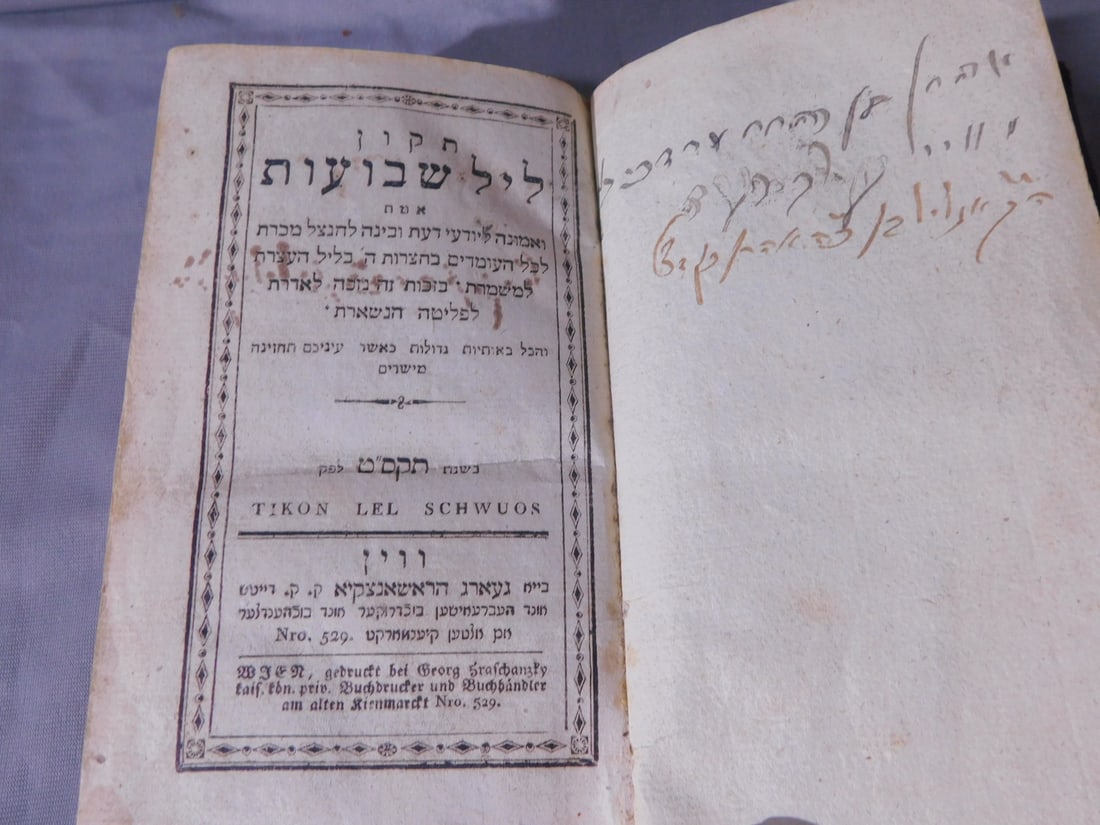 תקון
ליל שבועות
אמת
ואמונה ליודעי דעת ובינה להנצל מכרת
לכל העומדים בחצרות ה' בליל העצרת
למשמרת׳ בזכות זה נזכה לאדרת
לפליטה הנשארת׳
והכל באותיות גדולות כאשר עיניכם תחזינה
מישרים
בשנת תקס"ט לפק
TIKON LEL SCHWUOS
ווין
בייא געארג הראשאנצקיא ק. ק. דייטש
אונד העברעאישען בוכדרוקער אונד בוכהענדלער
אם אלטען קיענמארקט Nro. 529.
WIEN, gedruckt bei Georg Hraschanzky
kais. kön. priv. Buchdrucker und Buchhändler
am alten Kienmarckt Nro. 529.